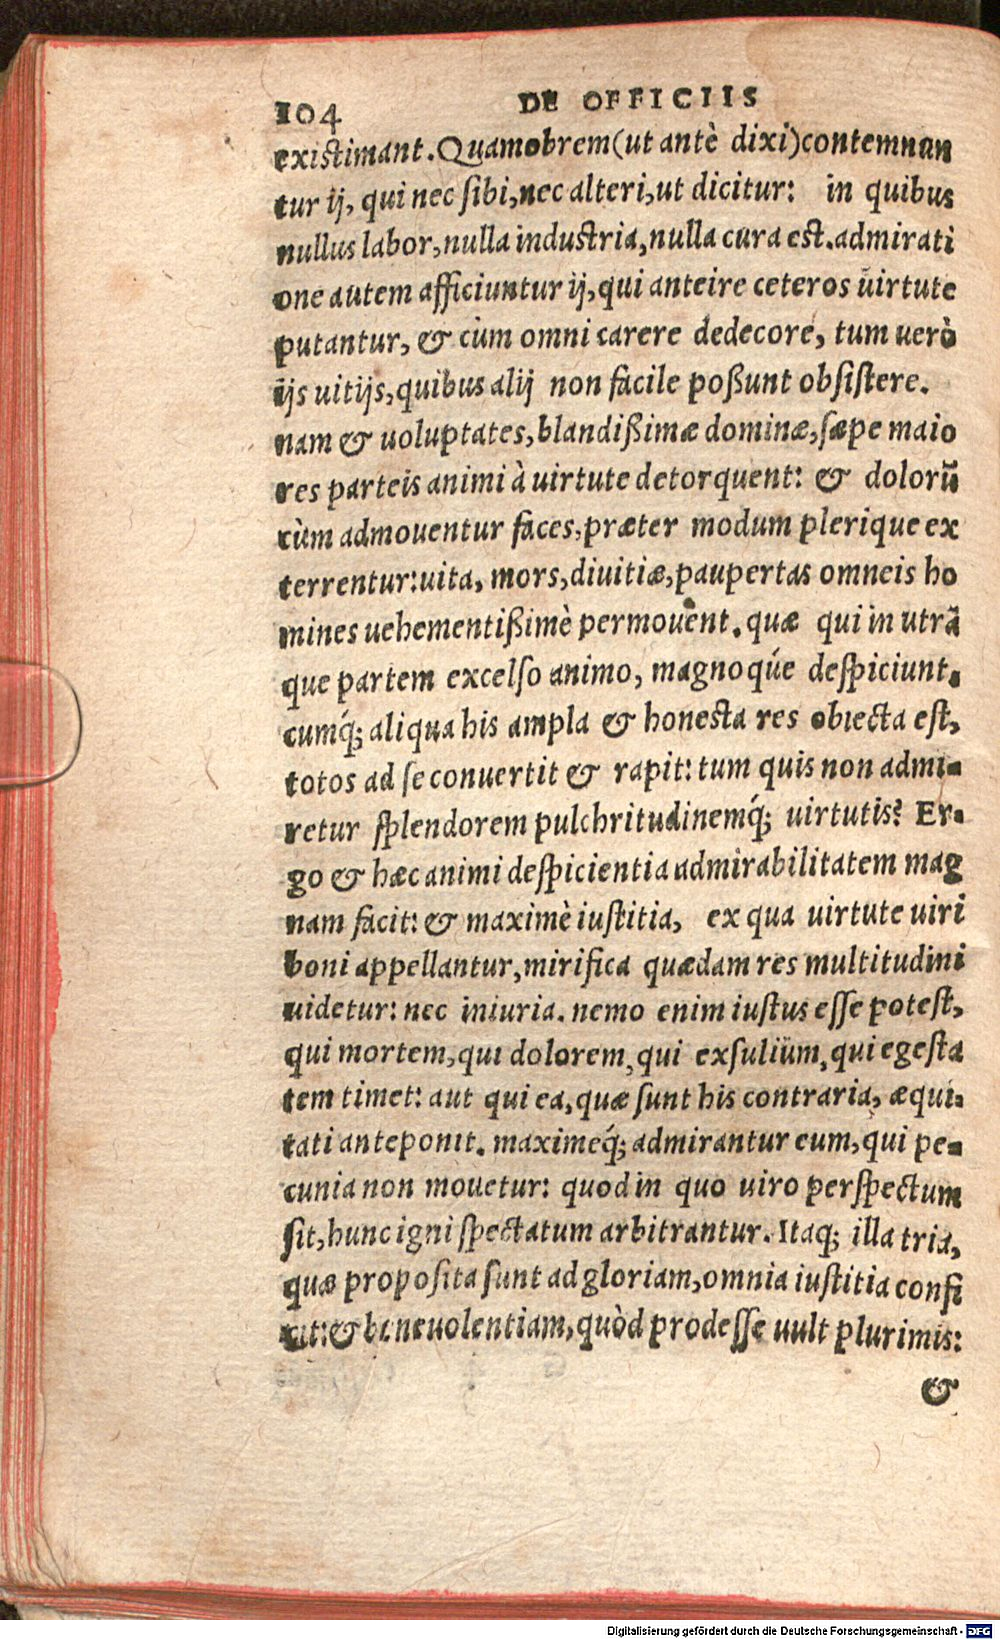 104 DE OFFICIIS
existimant. Quamobrem (ut antè dixi) contemnan
tur ij, qui nec sibi, nec alteri, ut dicitur: in quibus
nullus labor, nulla industria, nulla cura est. admirati
one autem afficiuntur ij, qui anteire ceteros uirtute
putantur, & cùm omni carere dedecore, tum uerò
ijs uitijs, quibus alij non facile poßunt obsistere.
nam & uoluptates, blandißimæ dominæ, sæpe maio
res parteis animi à uirtute detorquent: & dolorū
cùm admouentur faces, præter modum plerique ex
terrentur: uita, mors, diuitiæ, paupertas omneis ho
mines uehementißimè permouent. quæ qui in utrā
que partem excelso animo, magnoqúe despiciunt.
cumq́; aliqua his ampla & honesta res obiecta est,
totos ad se conuertit & rapit: tum quis non admi-
retur splendorem pulchritudinemq́; uirtutis? Er-
go & hæc animi despicientia admirabilitatem mag
nam facit: & maximè iustitia, ex qua uirtute uiri
boni appellantur, mirifica quædam res multitudini
uidetur: nec iniuria. nemo enim iustus esse potest,
qui mortem, qui dolorem, qui exsulium, qui egesta
tem timet: aut qui ea, quæ sunt his contraria, æqui-
tati anteponit. maximeq́; admirantur eum, qui pe-
cunia non mouetur: quod in quo uiro perspectum
sit, hunc igni spectatum arbitrantur. Itaq; illa tria,
quæ proposita sunt ad gloriam, omnia iustitia confi
cit: & beneuolentiam, quòd prodesse uult plurimis:
&
Digitalisierung gefördert durch die Deutsche Forschungsgemeinschaft - DFG